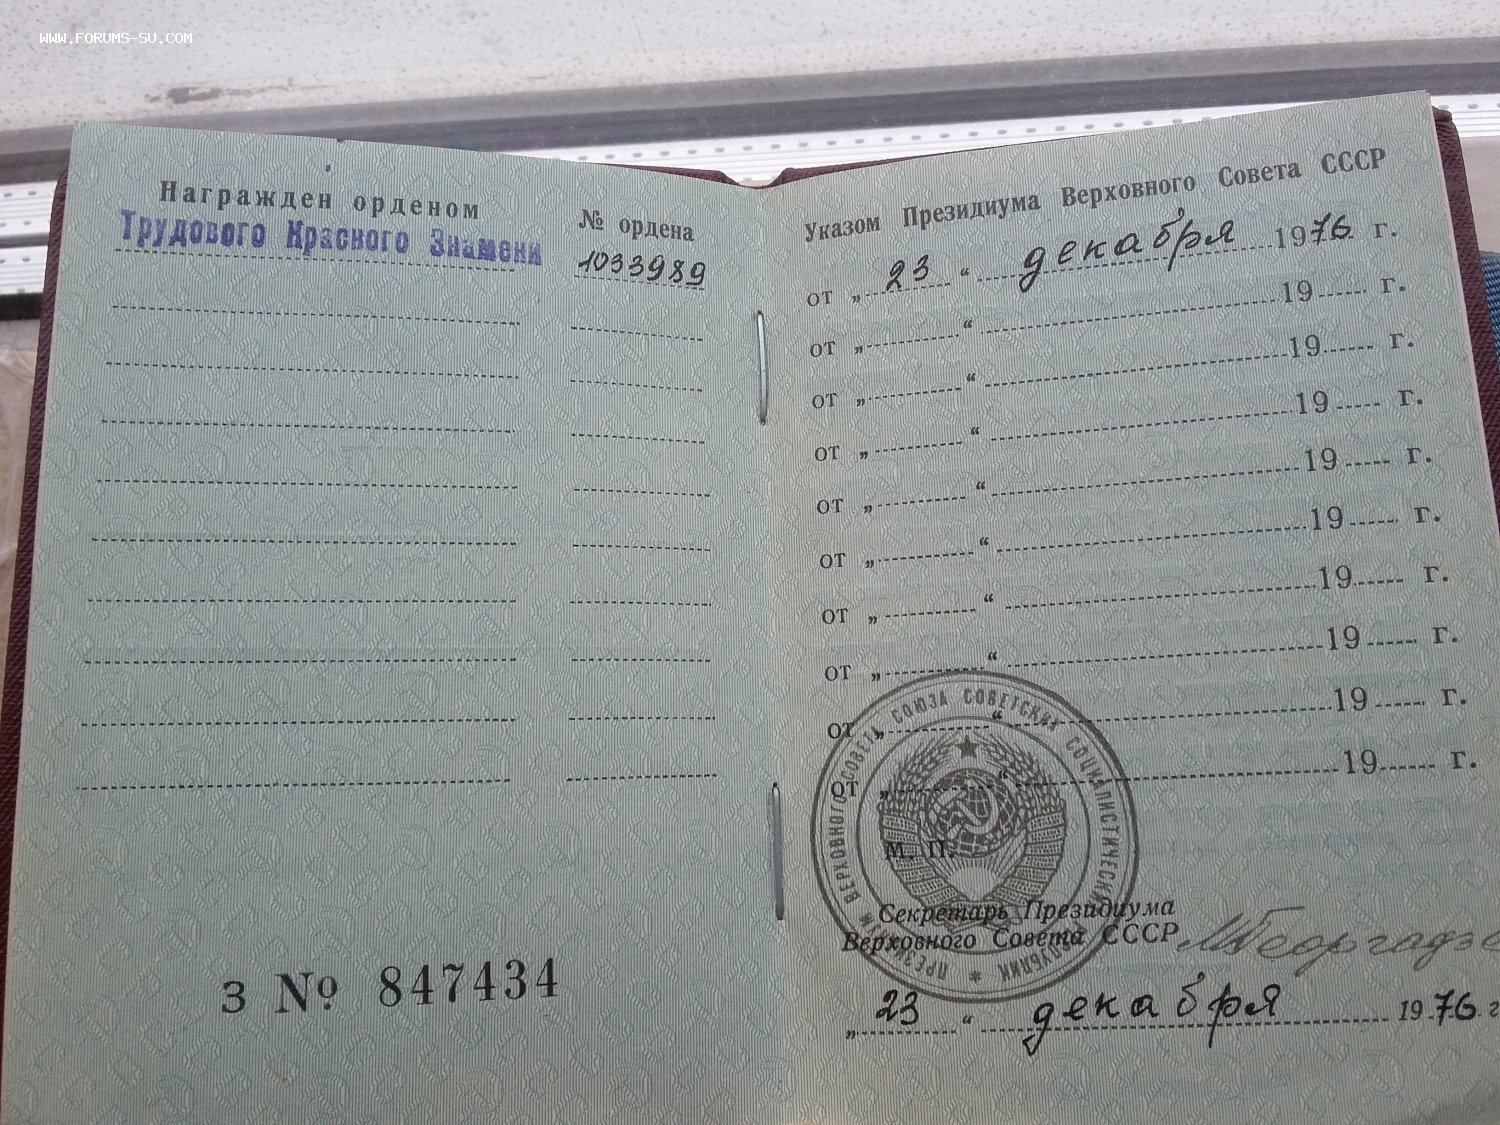 WWW.FORUMS-SU.COM
Награжден орденом
Трудового Красного Знамени
№ ордена
1033989
З № 847434
Указом Президиума Верховного Совета СССР
от „ 23 “ декабря 1976 г.
от „ “ 19 г.
от „ “ 19 г.
от „ “ 19 г.
от „ “ 19 г.
от „ “ 19 г.
от „ “ 19 г.
от „ “ 19 г.
от „ “ 19 г.
от „ “ 19 г.
М. П.
ПРЕЗИДИУМ ВЕРХОВНОГО СОВЕТА СОЮЗА СОВЕТСКИХ СОЦИАЛИСТИЧЕСКИХ РЕСПУБЛИК
Секретарь Президиума
Верховного Совета СССР
М Георгадзе
„ 23 “ декабря 1976 г